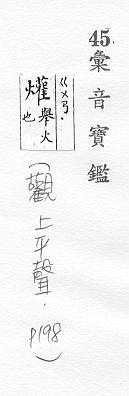 45.彙音寶鑑
ㄍㄨㄢˋ
爟舉火也
(觀上平聲.P198)